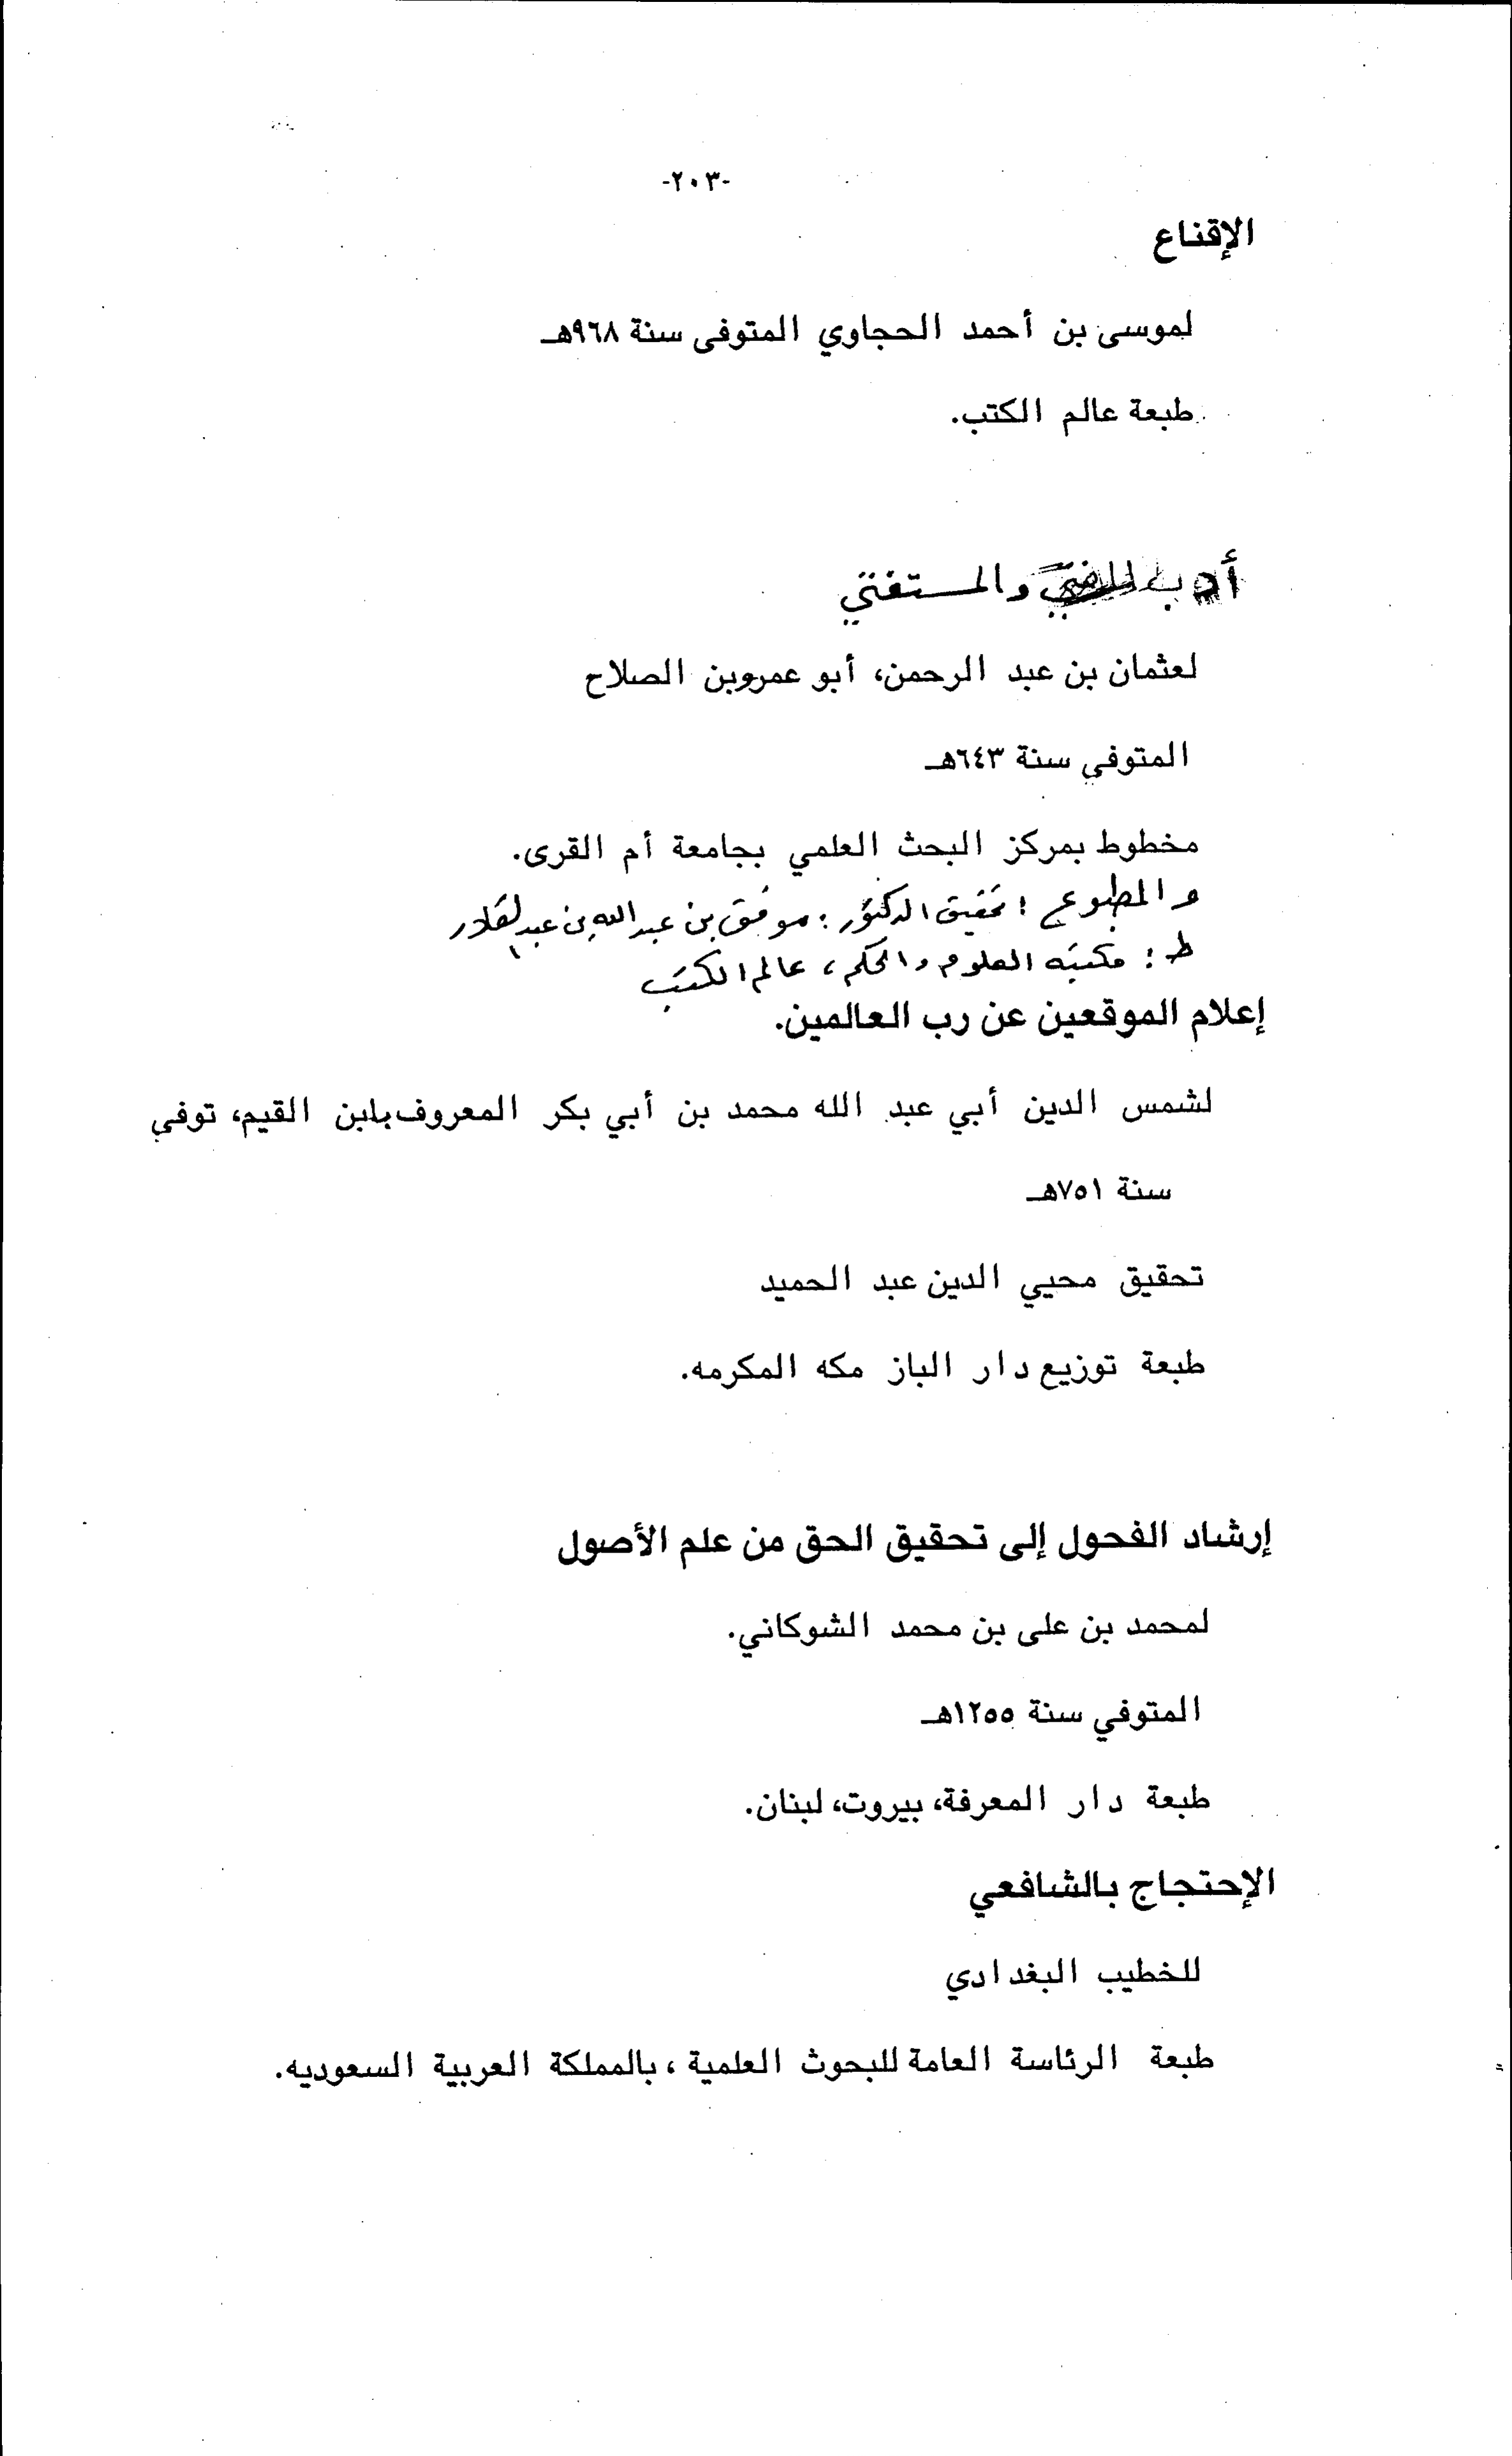 -٢٠٣-
الإقناع
لموسى بن أحمد الحجاوي المتوفى سنة ٩٦٨هـ
طبعة عالم الكتب.
أدب المفتي والمستفتي
لعثمان بن عبد الرحمن، أبو عمروبن الصلاح
المتوفي سنة ٦٤٣هـ
مخطوط بمركز البحث العلمي بجامعة أم القرى.
والمطبوع : تحقيق الدكتور : موفق بن عبد الله بن عبد القادر
ط : مكتبه العلوم والحكم، عالم الكتب
إعلام الموقعين عن رب العالمين.
لشمس الدين أبي عبد الله محمد بن أبي بكر المعروف بابن القيم، توفي
سنة ٧٥١هـ
تحقيق محيي الدين عبد الحميد
طبعة توزيع دار الباز مكه المكرمه.
إرشاد الفحول إلى تحقيق الحق من علم الأصول
لمحمد بن على بن محمد الشوكاني.
المتوفي سنة ١٢٥٥هـ
طبعة دار المعرفة، بيروت، لبنان.
الإحتجاج بالشافعي
للخطيب البغدادي
طبعة الرئاسة العامة للبحوث العلمية ، بالمملكة العربية السعوديه.